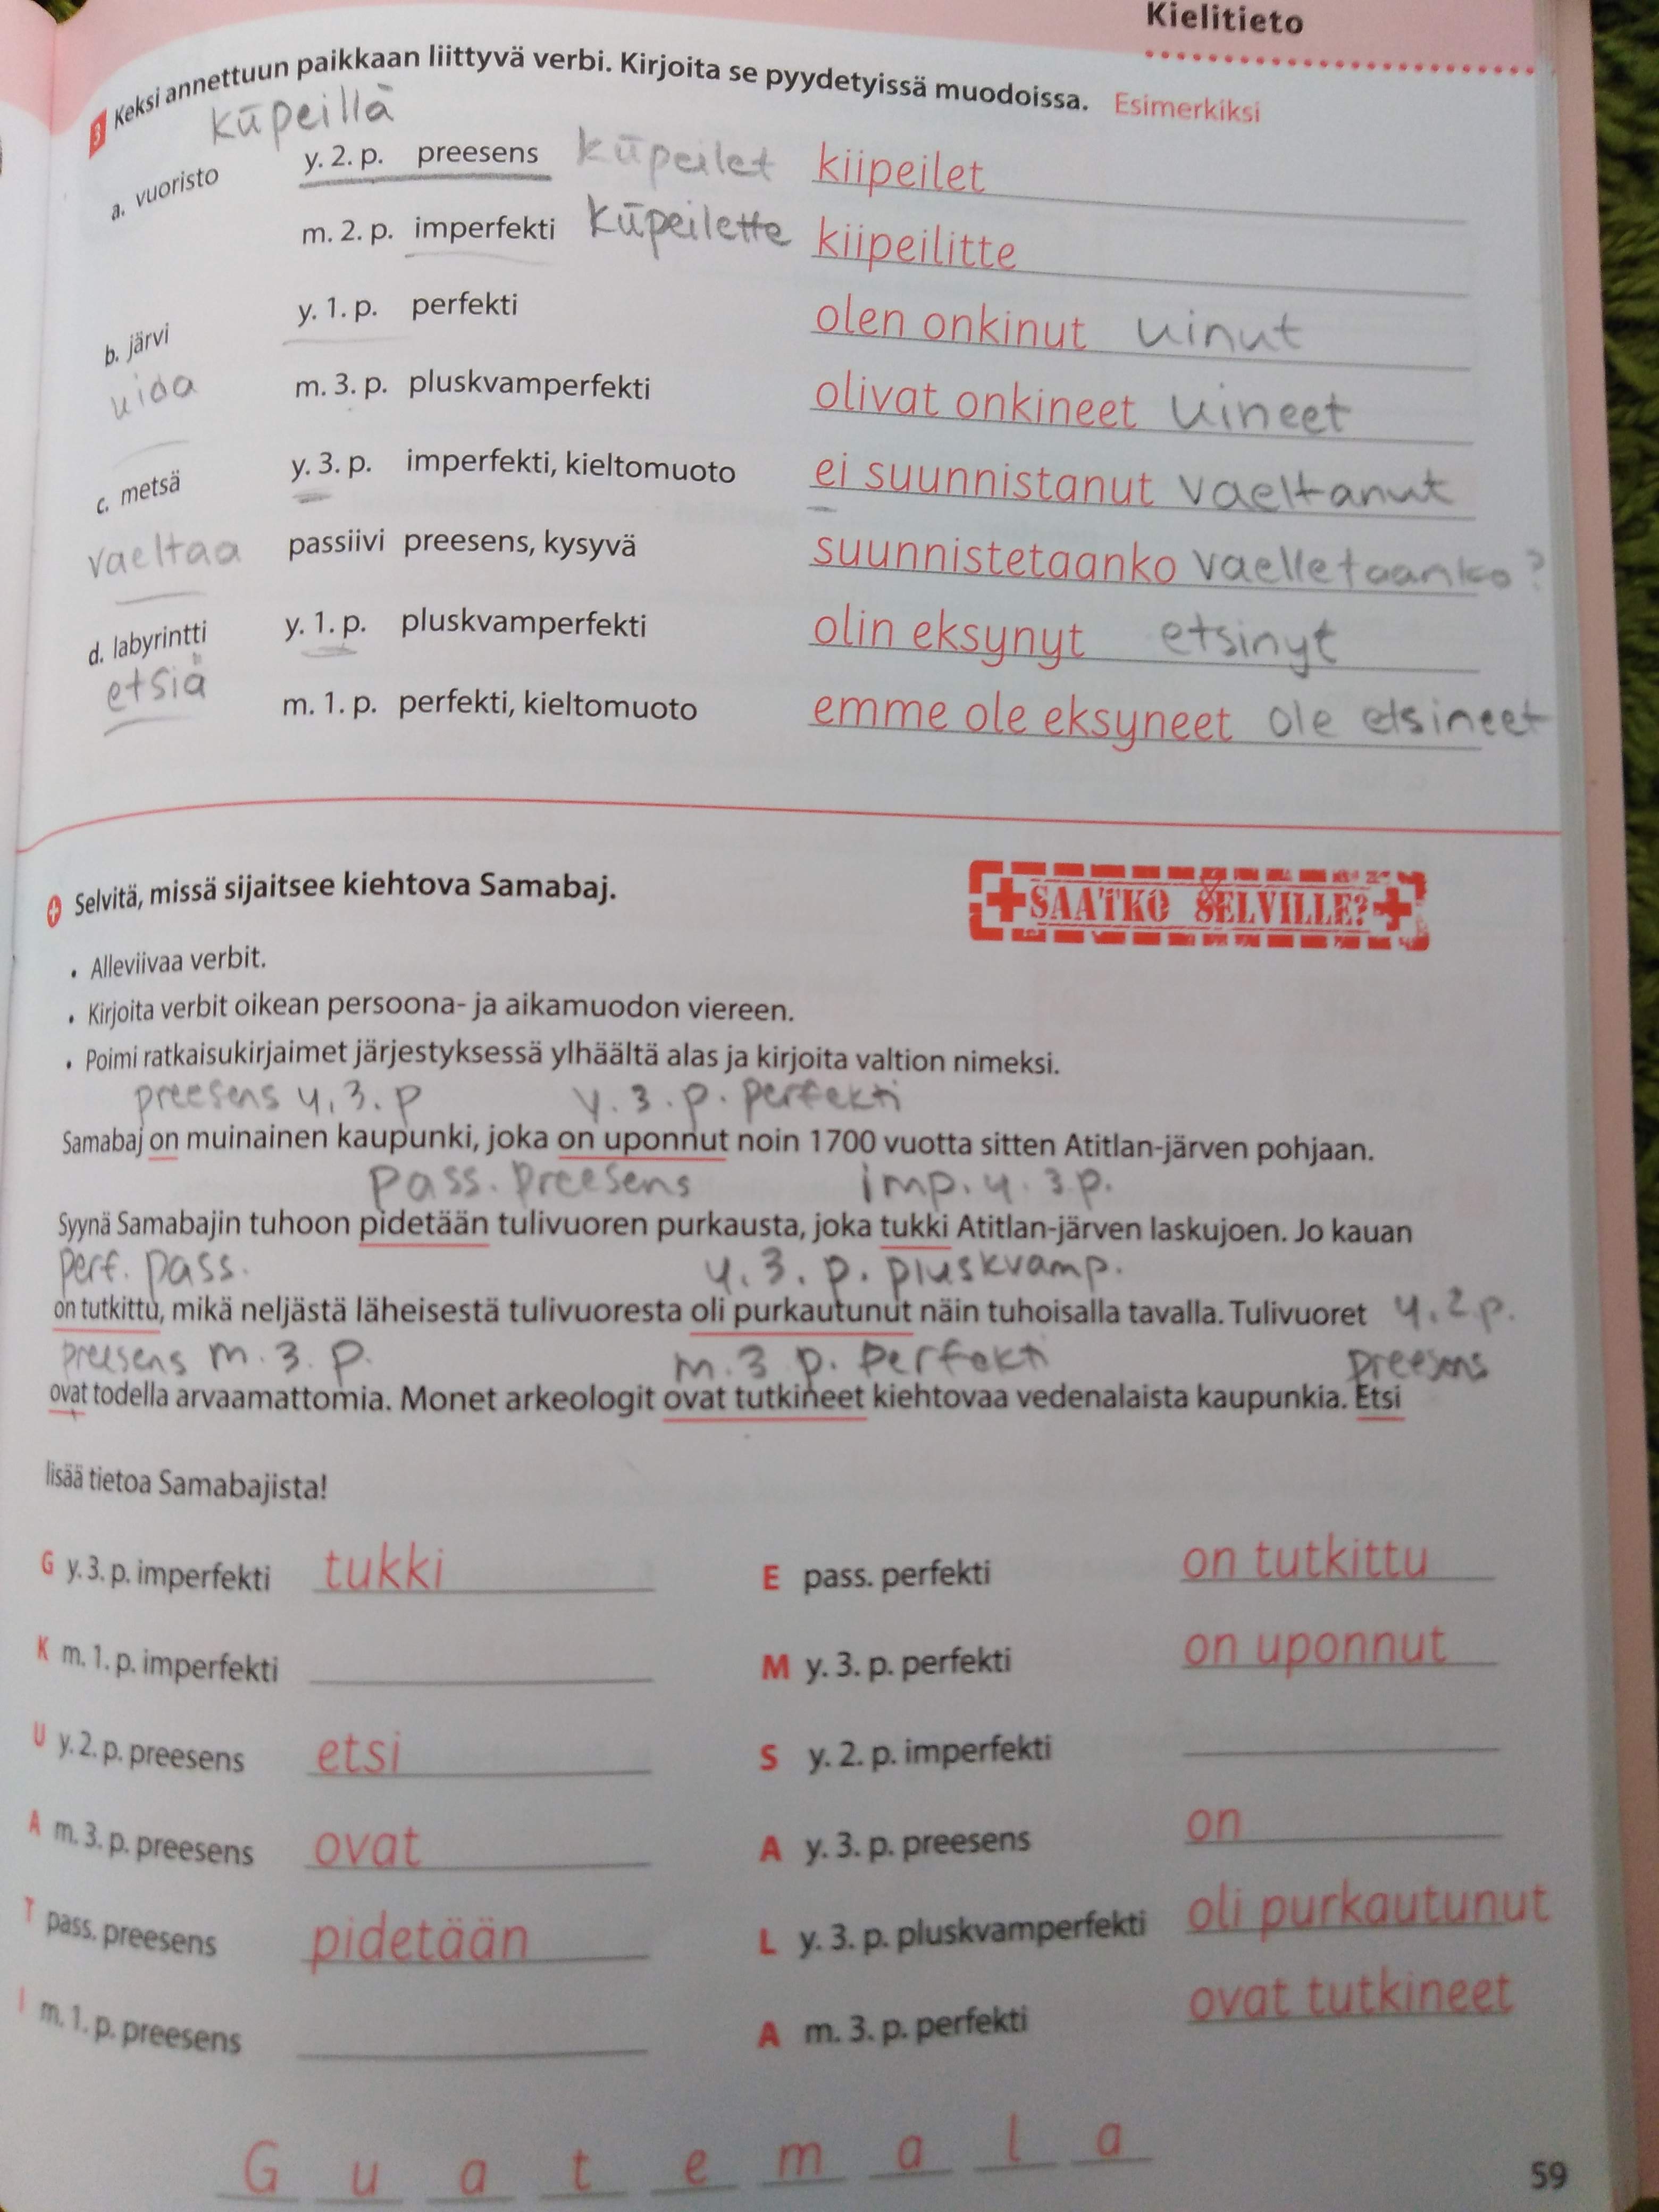 Kielitieto
3 Keksi annettuun paikkaan liittyvä verbi. Kirjoita se pyydetyissä muodoissa. Esimerkiksi
kiipeillä
a. vuoristo y. 2. p. preesens kiipeilet kiipeilet
m. 2. p. imperfekti kiipeilette kiipeilitte
b. järvi y. 1. p. perfekti olen onkinut uinut
uida m. 3. p. pluskvamperfekti olivat onkineet uineet
c. metsä y. 3. p. imperfekti, kieltomuoto ei suunnistanut vaeltanut
vaeltaa passiivi preesens, kysyvä suunnistetaanko vaelletaanko?
d. labyrintti y. 1. p. pluskvamperfekti olin eksynyt etsinyt
etsiä m. 1. p. perfekti, kieltomuoto emme ole eksyneet ole etsineet
+ Selvitä, missä sijaitsee kiehtova Samabaj.
+SAATKO SELVILLE?+
• Alleviivaa verbit.
• Kirjoita verbit oikean persoona- ja aikamuodon viereen.
• Poimi ratkaisukirjaimet järjestyksessä ylhäältä alas ja kirjoita valtion nimeksi.
preesens y. 3. p y. 3. p. perfekti
Samabaj on muinainen kaupunki, joka on uponnut noin 1700 vuotta sitten Atitlan-järven pohjaan.
pass. preesens imp. y. 3. p.
Syynä Samabajin tuhoon pidetään tulivuoren purkausta, joka tukki Atitlan-järven laskujoen. Jo kauan
perf. pass. y. 3. p. pluskvamp.
on tutkittu, mikä neljästä läheisestä tulivuoresta oli purkautunut näin tuhoisalla tavalla. Tulivuoret y. 2. p.
preesens m. 3. p. m. 3 p. perfekti preesens
ovat todella arvaamattomia. Monet arkeologit ovat tutkineet kiehtovaa vedenalaista kaupunkia. Etsi
lisää tietoa Samabajista!
G y. 3. p. imperfekti tukki E pass. perfekti on tutkittu
K m. 1. p. imperfekti M y. 3. p. perfekti on uponnut
U y. 2. p. preesens etsi S y. 2. p. imperfekti
A m. 3. p. preesens ovat A y. 3. p. preesens on
T pass. preesens pidetään L y. 3. p. pluskvamperfekti oli purkautunut
I m. 1. p. preesens A m. 3. p. perfekti ovat tutkineet
G u a t e m a l a
59